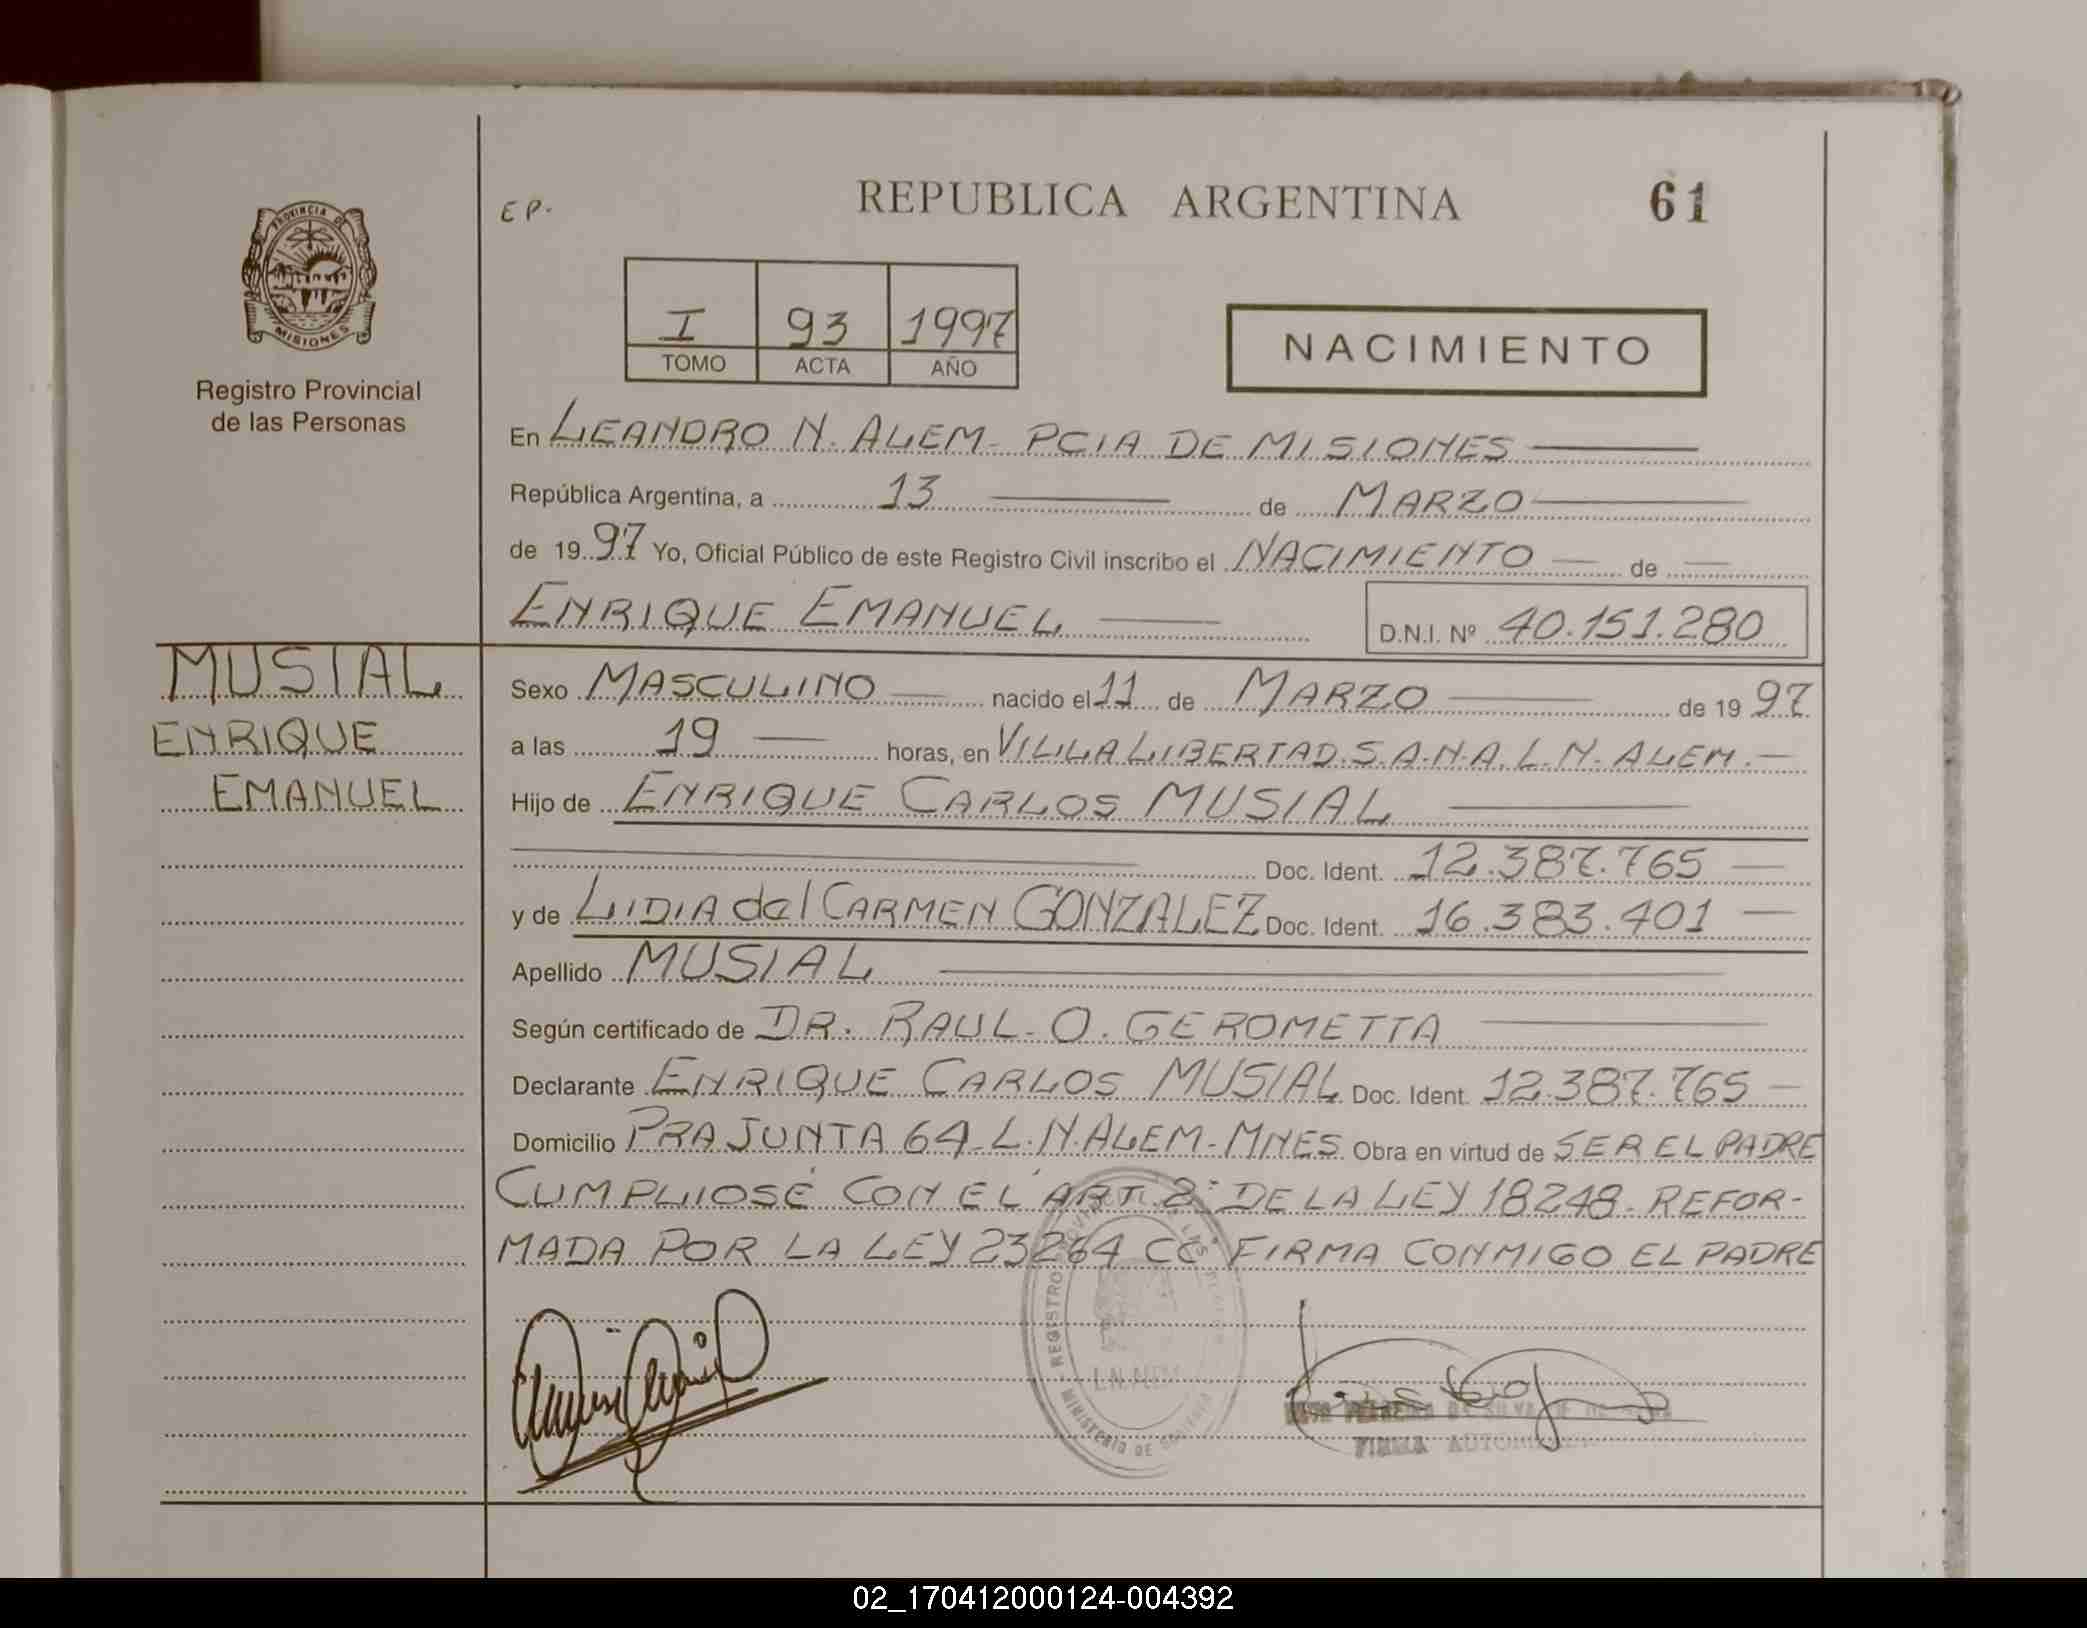 REPUBLICA ARGENTINA
61
EP.
PROVINCIA DE
MISIONES
Registro Provincial
de las Personas
I 93 1997
TOMO ACTA AÑO
NACIMIENTO
En LEANDRO N. ALEM - PCIA DE MISIONES
República Argentina, a 13 de MARZO
de 1997 Yo, Oficial Público de este Registro Civil inscribo el NACIMIENTO de
ENRIQUE EMANUEL D.N.I. Nº 40.151.280
MUSIAL
ENRIQUE
EMANUEL
Sexo MASCULINO nacido el 11 de MARZO de 1997
a las 19 horas, en VILLA LIBERTAD. S.A.N.A. L.N. ALEM.
Hijo de ENRIQUE CARLOS MUSIAL
Doc. Ident. 12.387.765
y de LIDIA del CARMEN GONZALEZ Doc. Ident. 16.383.401
Apellido MUSIAL
Según certificado de DR. RAUL. O. GEROMETTA
Declarante ENRIQUE CARLOS MUSIAL Doc. Ident. 12.387.765
Domicilio PRA JUNTA 64 - L.N. ALEM - MNES Obra en virtud de SER EL PADRE
CUMPLIOSÉ CON EL ART. 2º DE LA LEY 18248 - REFOR-
MADA POR LA LEY 23264 CC FIRMA CONMIGO EL PADRE
REGISTRO
L.N. ALEM
MINISTERIO DE
FIRMA
02_170412000124-004392